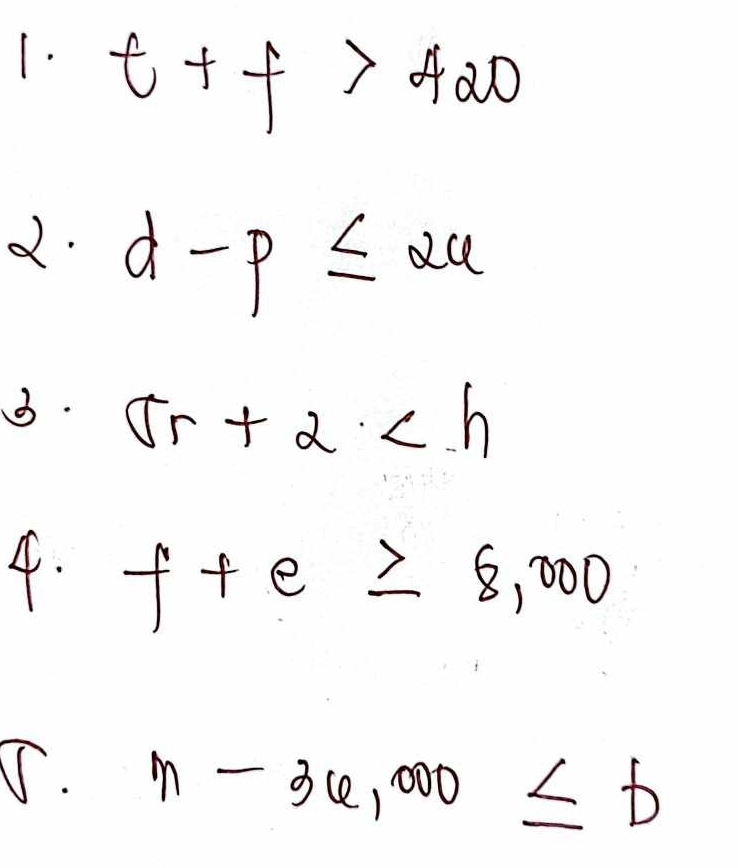 1. t + f > 420
2. d - p ≤ 26
3. 5r + 2 < h
4. f + e ≥ 8,000
5. n - 36,000 ≤ b